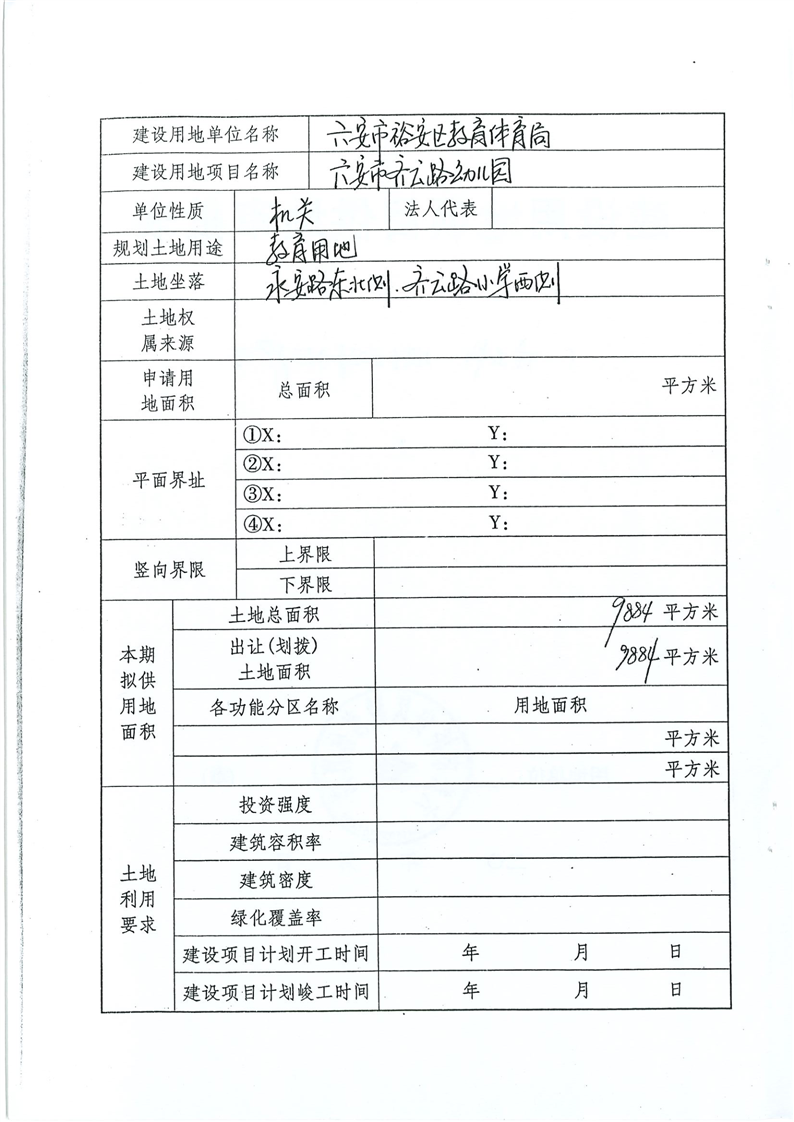 建设用地单位名称 六安市裕安区教育体育局
建设用地项目名称 六安市齐云路幼儿园
单位性质 机关 法人代表
规划土地用途 教育用地
土地坐落 永安路东北侧.齐云路小学西侧
土地权
属来源
申请用
地面积 总面积 平方米
平面界址
①X: Y:
②X: Y:
③X: Y:
④X: Y:
竖向界限
上界限
下界限
本期
拟供
用地
面积
土地总面积 9884 平方米
出让(划拨)
土地面积 9884 平方米
各功能分区名称 用地面积
平方米
平方米
土地
利用
要求
投资强度
建筑容积率
建筑密度
绿化覆盖率
建设项目计划开工时间 年 月 日
建设项目计划峻工时间 年 月 日